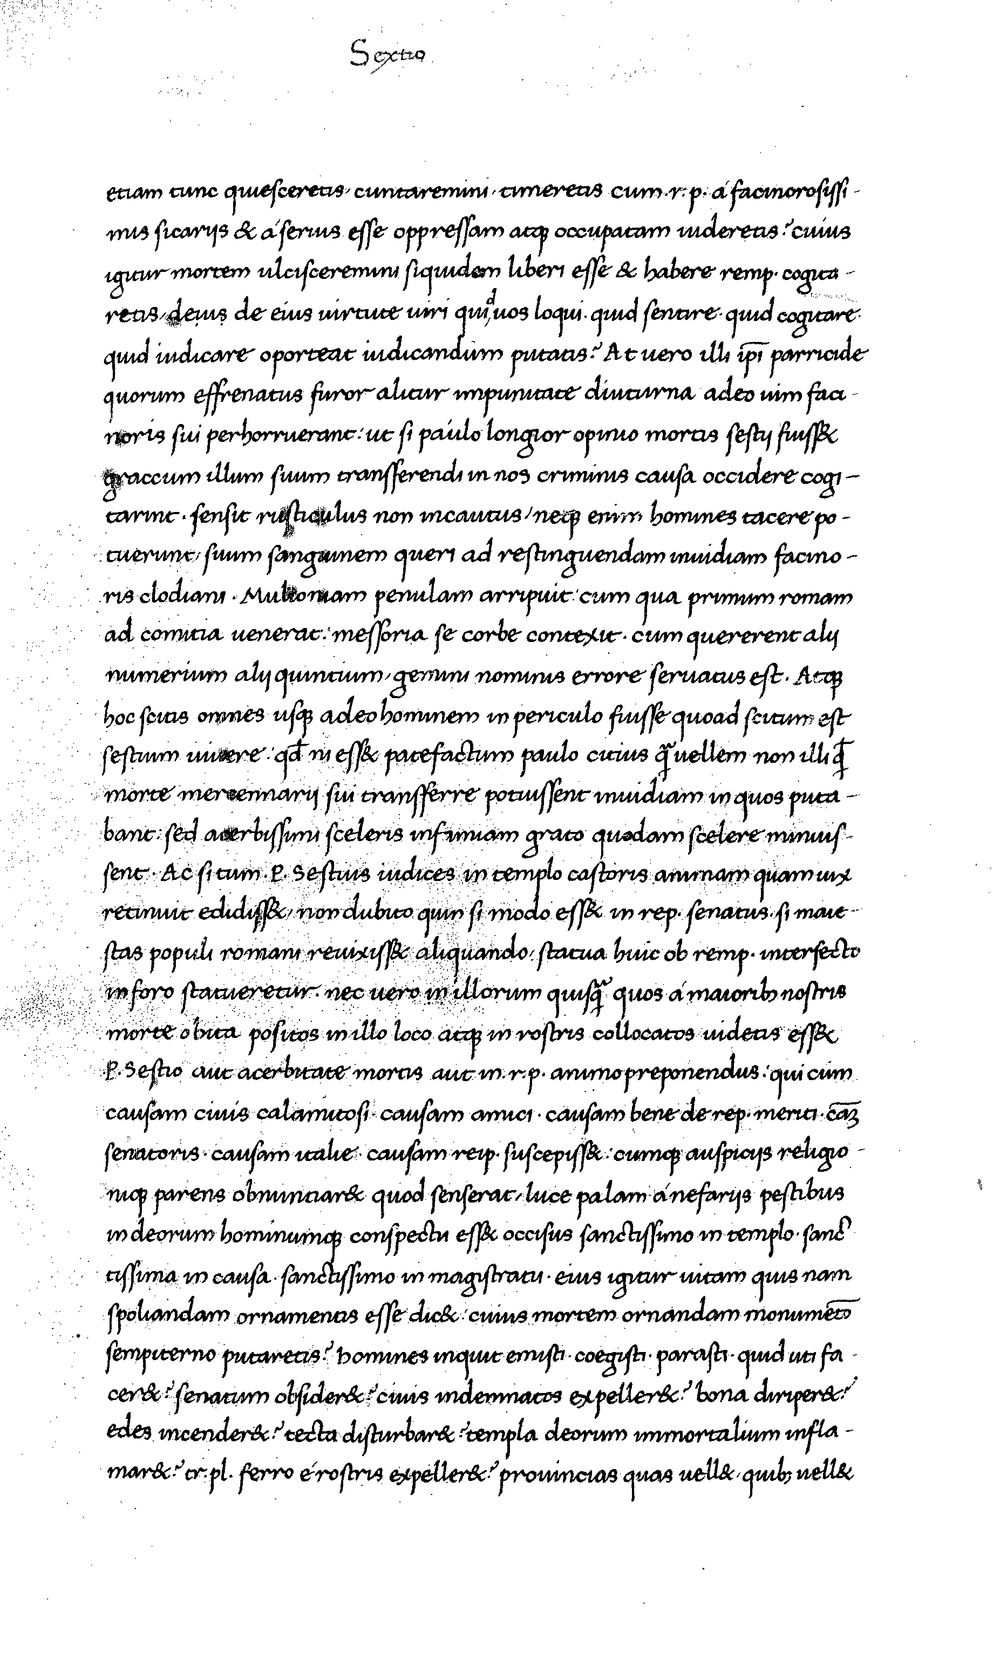 Sextio
etiam tunc quiesceretis, cuntaremini, timeretis cum .r. p. á facinorosissi-
mis sicariis & á seruis esse oppressam atq; occupatam uideretis? cuius
igitur mortem ulcisceremini siquidem liberi esse & habere remp. cogita-
retis, de eius uirtute uiri quid uos loqui. quid sentire. quid cogitare.
quid iudicare oporteat iudicandum putatis? At uero illi ip̄i parricide
quorum effrenatus furor alitur impunitate diuturna adeo uim faci-
noris sui perhorruerant: ut si paulo longior opinio mortis sestij fuiss&
graccum illum suum transferendi in nos criminis causa occidere cogi-
tarint. sensit rusticulus non incautus, neq; enim homines tacere po-
tuerunt, suum sanguinem queri ad restinguendam inuidiam facino-
ris clodiani. Mulioniam penulam arripuit cum qua primum romam
ad comitia uenerat: messoria se corbe contexit. cum quererent alij
numerium alij quintium, gemini nominis errore seruatus est. Atq;
hoc scitis omnes usq; adeo hominem in periculo fuisse quoad scitum est
sestium uiuere: qđ ni ess& patefactum paulo citius q̄ uellem non illi q̄
morte mercennarij sui transferre potuissent inuidiam in quos puta-
bant: sed acerbissimi sceleris infamiam grato quodam scelere minuis-
sent. Ac si tum .P. Sestius iudices in templo castoris animam quam uix
retinuit edidiss&, non dubito quin si modo ess& in rep. senatus. si maie-
stas populi romani reuixiss& aliquando, statua huic ob remp. interfecto
in foro statueretur. nec uero in illorum quisq̄ quos á maiorib; nostris
morte obita positos in illo loco atq; in rostris collocatos uidetis ess&
P. Sestio aut acerbitate mortis aut in .r. p. animo preponendus: qui cum
causam ciuis calamitosi. causam amici. causam bene de rep. meriti. cāz
senatoris. causam italie. causam reip. suscepiss&: cumq; auspicijs religio-
niq; parens obnunciar& quod senserat, luce palam á nefarijs pestibus
in deorum hominumq; conspectu ess& occisus sanctissimo in templo. sanc
tissima in causa. sanctissimo in magistratu. eius igitur uitam quis nam
spoliandam ornamentis esse dic&: cuius mortem ornandam monumēto
sempiterno putaretis? homines inquit emisti. coegisti. parasti. quid uti fa-
cer&? senatum obsider&? ciuis indemnatos expeller&? bona diriper&?
edes incender&? tecta disturbar&? templa deorum immortalium infla-
mar&? tr. pl. ferro é rostris expeller&? prouincias quas uell&, quib; uell&